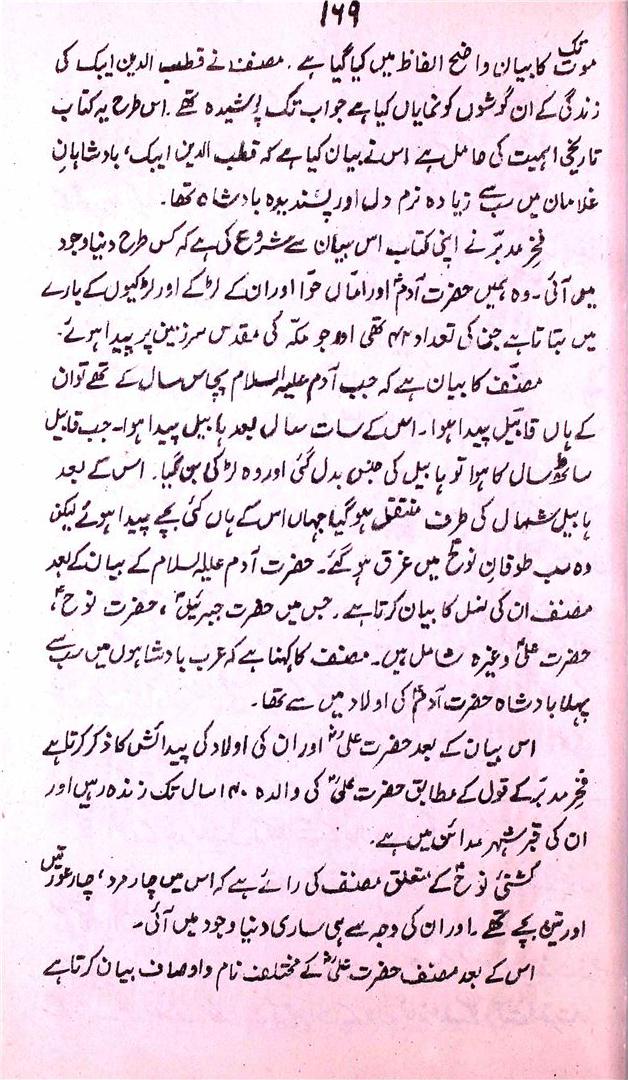 ۱۶۹
موت تک کا بیان واضح الفاظ میں کیا گیا ہے ۔ مصنف نے قطب الدین ایبک کی
زندگی کے ان گوشوں کو نمایاں کیا ہے جو اب تک پوشیدہ تھے ۔ اس طرح یہ کتاب
تاریخی اہمیت کی حامل ہے اس نے بیان کیا ہے کہ قطب الدین ایبک، بادشاہانِ
غلامان میں سب سے زیادہ نرم دل اور پسندیدہ بادشاہ تھا۔
فخرِ مدبّر نے اپنی کتاب اس بیان سے شروع کی ہے کہ کس طرح دنیا وجود
میں آئی ۔ وہ ہمیں حضرت آدمؑ اور امّاں حوّا اور ان کے لڑکے اور لڑکیوں کے بارے
میں بتاتا ہے جن کی تعداد ۴۲ تھی اور جو مکّہ کی مقدس سرزمین پر پیدا ہوئے۔
مصنّف کا بیان ہے کہ جب آدم علیہ السلام پچاس سال کے تھے تو ان
کے ہاں قابیل پیدا ہوا ۔ اس کے سات سال بعد ہابیل پیدا ہوا ۔ جب قابیل
ساٹھ سال کا ہوا تو ہابیل کی جنس بدل گئی اور وہ لڑکی بن گیا ۔ اس کے بعد
ہابیل شمال کی طرف منتقل ہو گیا جہاں اس کے ہاں کئی بچے پیدا ہوئے لیکن
وہ سب طوفانِ نوحؑ میں غرق ہو گئے ۔ حضرت آدم علیہ السلام کے بیان کے بعد
مصنف ان کی نسل کا بیان کرتا ہے ۔ جس میں حضرت جبرئیلؑ، حضرت نوحؑ،
حضرت علیؑ وغیرہ شامل ہیں ۔ مصنف کا کہنا ہے کہ عرب بادشاہوں میں سب سے
پہلا بادشاہ حضرت آدمؑ کی اولاد میں سے تھا۔
اس بیان کے بعد حضرت علیؓ اور ان کی اولاد کی پیدائش کا ذکر کرتا ہے
فخرِ مدبّر کے قول کے مطابق حضرت علیؓ کی والدہ ۱۴۰ سال تک زندہ رہیں اور
ان کی قبر شہر مدائن میں ہے ۔
کشتیٔ نوحؑ کے متعلق مصنف کی رائے ہے کہ اس میں چار مرد، چار عورتیں
اور تین بچے تھے ۔ اور ان کی وجہ سے ہی ساری دنیا وجود میں آئی ۔
اس کے بعد مصنف حضرت علیؓ کے مختلف نام و اوصاف بیان کرتا ہے